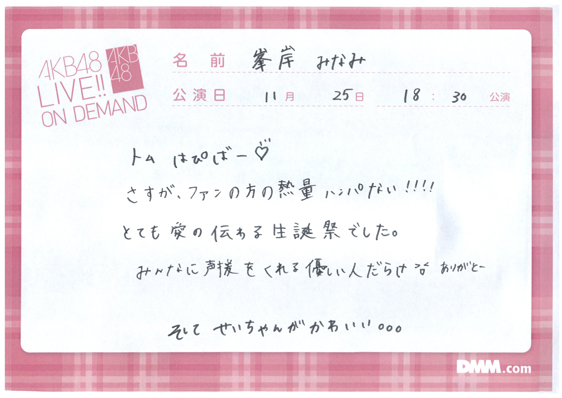 AKB48
LIVE!!
ON DEMAND
AKB
48
名前 峯岸 みなみ
公演日 11月 25日 18:30 公演
トム はぴばー♡
さすが、ファンの方の熱量ハンパない!!!!
とても愛の伝わる生誕祭でした。
みんなに声援をくれる優しい人だらけ ありがとー
そして せいちゃんがかわいい。。。
DMM.com